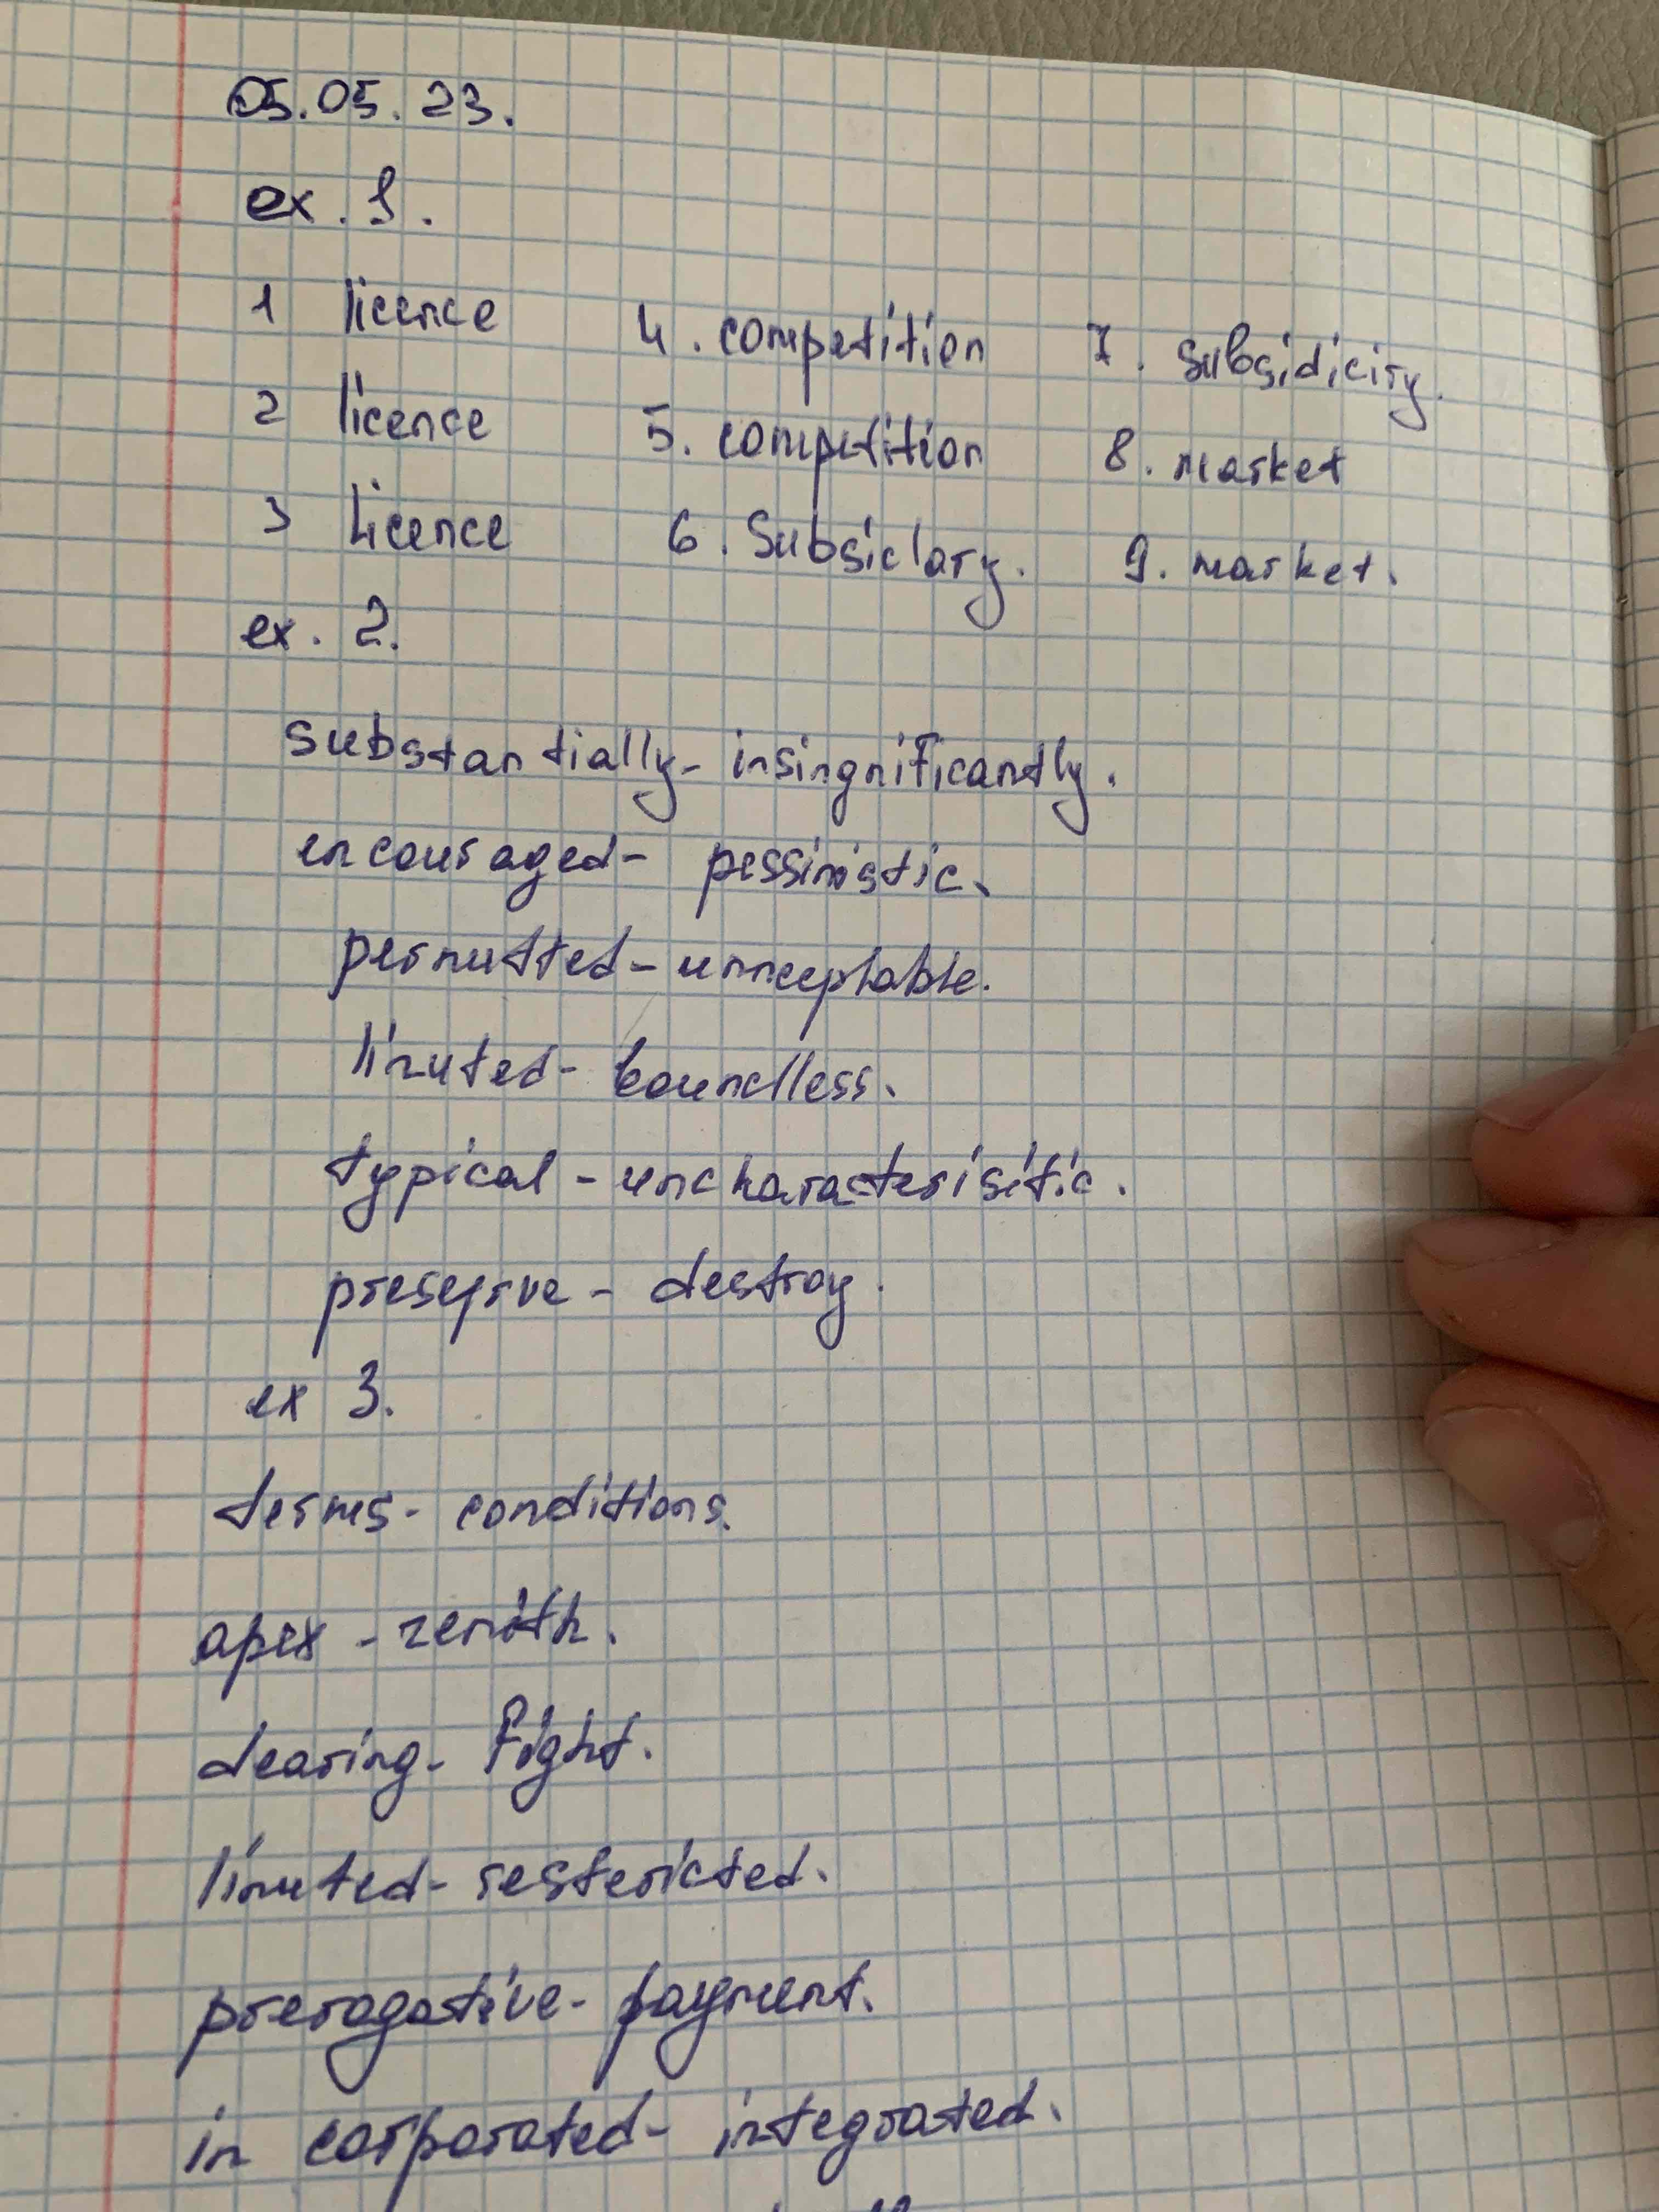 05.05.23.
ex. 1.
1 licence 4. competition 7. subsidiciry.
2 licence 5. competition 8. market
3 licence 6. Subsiclary. 9. market.
ex. 2.
substantially - insingnificantly.
encouraged - pessimistic.
permitted - unnceptable.
limited - boundless.
typical - uncharacterisitic.
preserve - destroy.
ex 3.
terms - conditions.
apex - zenith.
dearing - fight.
limited - restericted.
prerogative - payment.
in corporated - integrated.